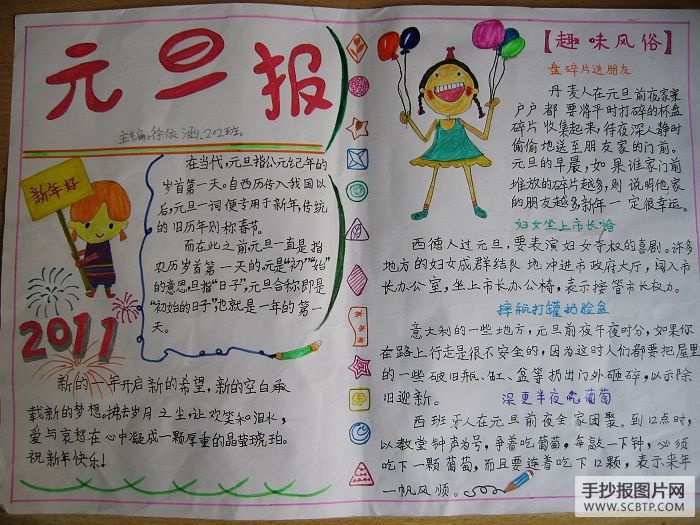 元旦报
主编:徐依涵 202班
新年好
2011
在当代,元旦指公元纪年的
岁首第一天。自西历传入我国以
后,元旦一词便专用于新年,传统
的旧历年则称春节。
而在此之前元旦一直是指
农历岁首第一天的。元是“初”“始”
的意思,旦指“日子”,元旦合称即是
“初始的日子”,也就是一年的第一
天。
新的一年开启新的希望,新的空白承
载新的梦想。拂去岁月之尘,让欢笑和泪水,
爱与哀愁在心中凝成一颗厚重的晶莹琥珀。
祝新年快乐!
【趣味风俗】
盘碎片送朋友
丹麦人在元旦前夜家家
户户都要将平时打碎的杯盘
碎片收集起来,待夜深人静时
偷偷地送至朋友家的门前。
元旦的早晨,如果谁家门前
堆放的碎片越多,则说明他家
的朋友越多新年一定很幸运。
妇女坐上市长椅
西德人过元旦,要表演妇女夺权的喜剧。许多
地方的妇女成群结队地冲进市政府大厅,闯入市
长办公室,坐上市长办公椅,表示接管市长权力。
摔瓶打罐扔脸盆
意大利的一些地方,元旦前夜午夜时分,如果你
在路上行走是很不安全的,因为这时人们都要把屋里
的一些破旧瓶、缸、盆等扔出门外砸碎,以示除
旧迎新。
深更半夜吃葡萄
西班牙人在元旦前夜全家团聚。到12点时,
以教堂钟声为号,争着吃葡萄,每敲一下钟,必须
吃下一颗葡萄,而且要连着吃下12颗,表示来年
一帆风顺。
手抄报图片网
WWW.SCBTP.COM